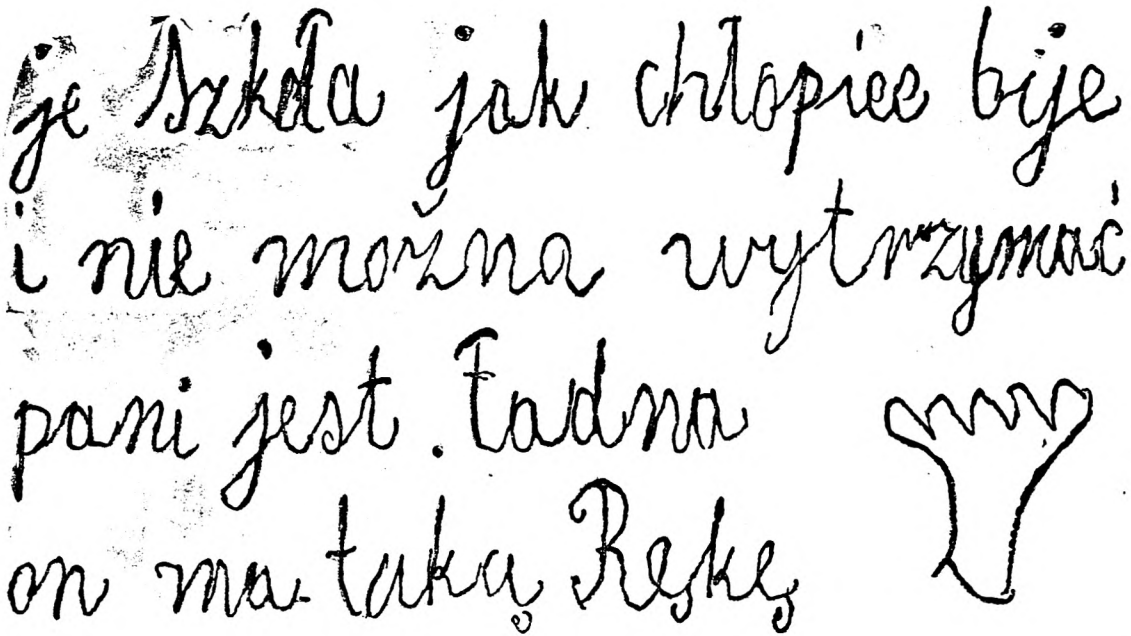 je Szkoła jak chłopiec bije
i nie można wytrzymać
pani jest. Ładna
on ma taką Ręskę